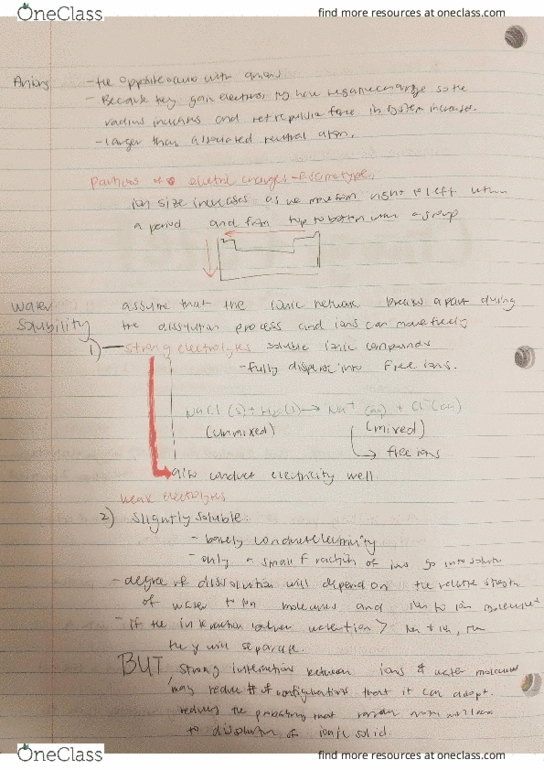 OneClass find more resources at oneclass.com
Anions - the opposite occurs with anions
- Because they gain electrons to have negative charge so the
radius increases and net repulsive force in system increases.
- Larger than associated neutral atom.
Particles of electric charges -
ion size increases as we move from right to left within
a period and from top to bottom within a group
water solubility assume that the ionic network breaks apart during
the dissolution process and ions can move freely
1) - strong electrolytes soluble ionic compounds
- fully disperse into free ions.
NaCl (s) + H2O(l) → Na+ (aq) + Cl-(aq)
(unmixed) (mixed)
→ free ions
conduct electricity well.
weak electrolytes
2) slightly soluble:
- barely conduct electricity
- only a small fraction of ions go into
- degree of dissolution will depend on the relative strength
of water to ion molecules and ion to ion
- if the interaction between water ion >
they will separate.
BUT strong interactions between ions & water molecules
may reduce # of configurations that it can adopt.
reduces the probability that
to dissolution of ionic solid.
OneClass find more resources at oneclass.com